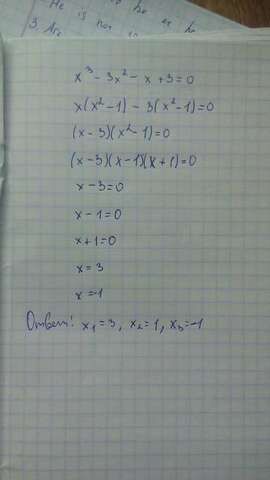 He is not
3. Are
x³ - 3x² - x + 3 = 0
x(x² - 1) - 3(x² - 1) = 0
(x - 3)(x² - 1) = 0
(x - 3)(x - 1)(x + 1) = 0
x - 3 = 0
x - 1 = 0
x + 1 = 0
x = 3
x = -1
Ответ: x₁ = 3, x₂ = 1, x₃ = -1